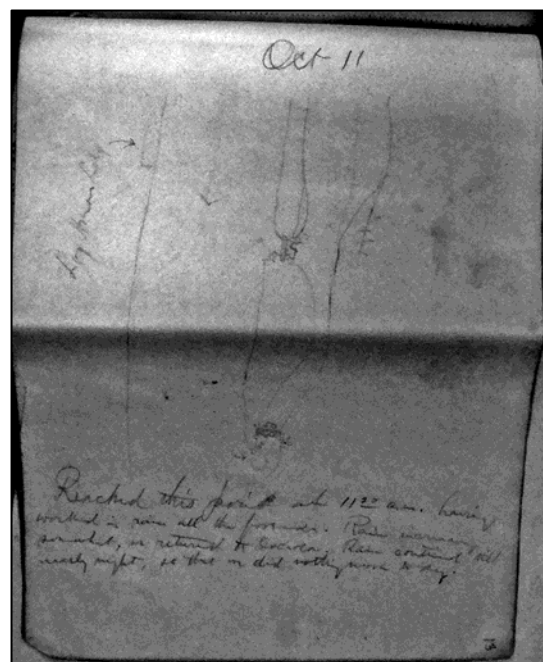 Oct 11
Reached this point at 11 20 a.m. having
worked in rain all the forenoon. Rain increasing
somewhat, we returned to. Rain continued till
nearly night, so that we did nothing more to-day.